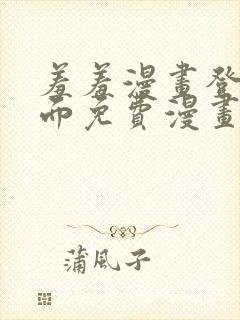 羞羞漫畫登
而免費漫畫
蒲風子